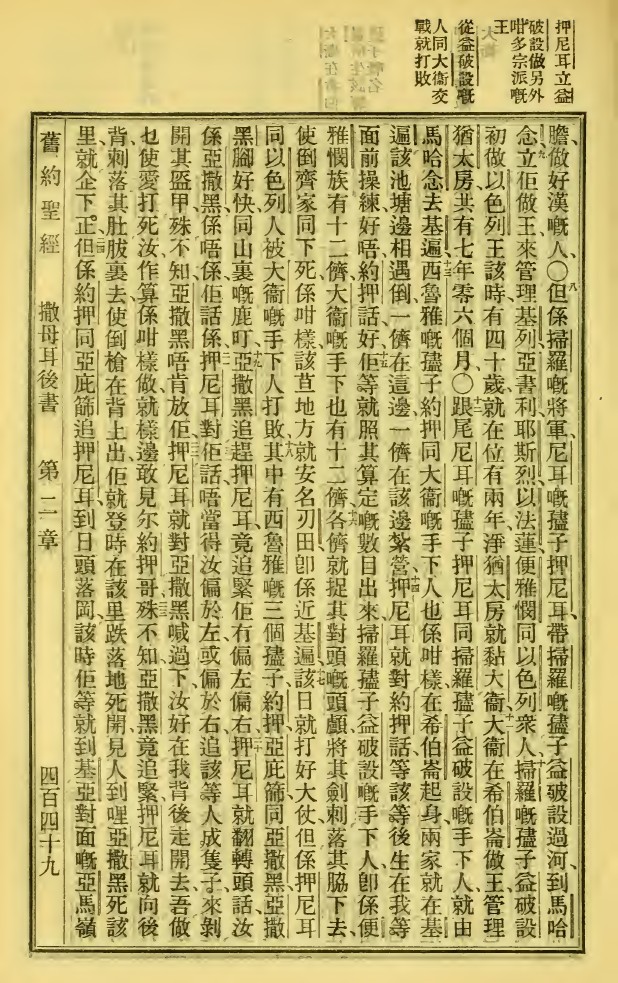 押尼耳立益
破設做另外
咁多宗派嘅
王
從益破設嘅
人同大衞交
戰就打敗
膽做好漢嘅人〇八但係掃羅嘅將軍尼耳嘅𡥧子押尼耳帶掃羅嘅𡥧子益破設過河到馬哈
念九立佢做王來管理基列亞書利耶斯烈以法蓮便雅憫同以色列衆人十掃羅嘅𡥧子益破設
初做以色列王該時有四十歲就在位有兩年淨猶太房就黏大衞十一大衞在希伯崙做王管理
猶太房共有七年零六個月〇十二跟尾尼耳嘅𡥧子押尼耳同掃羅𡥧子益破設嘅手下人就由
馬哈念去基遍十三西魯雅嘅𡥧子約押同大衞嘅手下人也係咁樣在希伯崙起身兩家就在基
遍該池塘邊相遇倒一儕在這邊一儕在該邊紮營十四押尼耳就對約押話等該等後生在我等
面前操練好唔約押話好十五佢等就照其算定嘅數目出來掃羅𡥧子益破設嘅手下人卽係便
雅憫族有十二儕大衞嘅手下也有十二儕十六各儕就捉其對頭嘅頭顱將其劍刺落其脇下去
使倒齊家同下死係咁樣該荁地方就安名刃田卽係近基遍十七該日就打好大仗但係押尼耳
同以色列人被大衞嘅手下人打敗十八其中有西魯雅嘅三個𡥧子約押亞庇篩同亞撒黑亞撒
黑腳好快同山裏嘅鹿叮十九亞撒黑追趕押尼耳竟追緊佢冇偏左偏右二十押尼耳就翻轉頭話汝
係亞撒黑係唔係佢話係押尼耳對佢話唔當得汝偏於左或偏於右追該等人成隻子來剝
開其盔甲殊不知亞撒黑唔肯放佢押尼耳就對亞撒黑喊過下汝好在我背後走開去吾做
乜使愛打死汝作算係咁樣做就樣邊敢見尔約押哥殊不知亞撒黑竟追緊押尼耳就向後
背刺落其肚胈裏去使倒槍在背上出佢就登時在該里跌落地死開見人到哩亞撒黑死該
里就企下正但係約押同亞庇篩追押尼耳到日頭落岡該時佢等就到基亞對面嘅亞馬嶺
舊約聖經　撒母耳後書　第二章　四百四十九